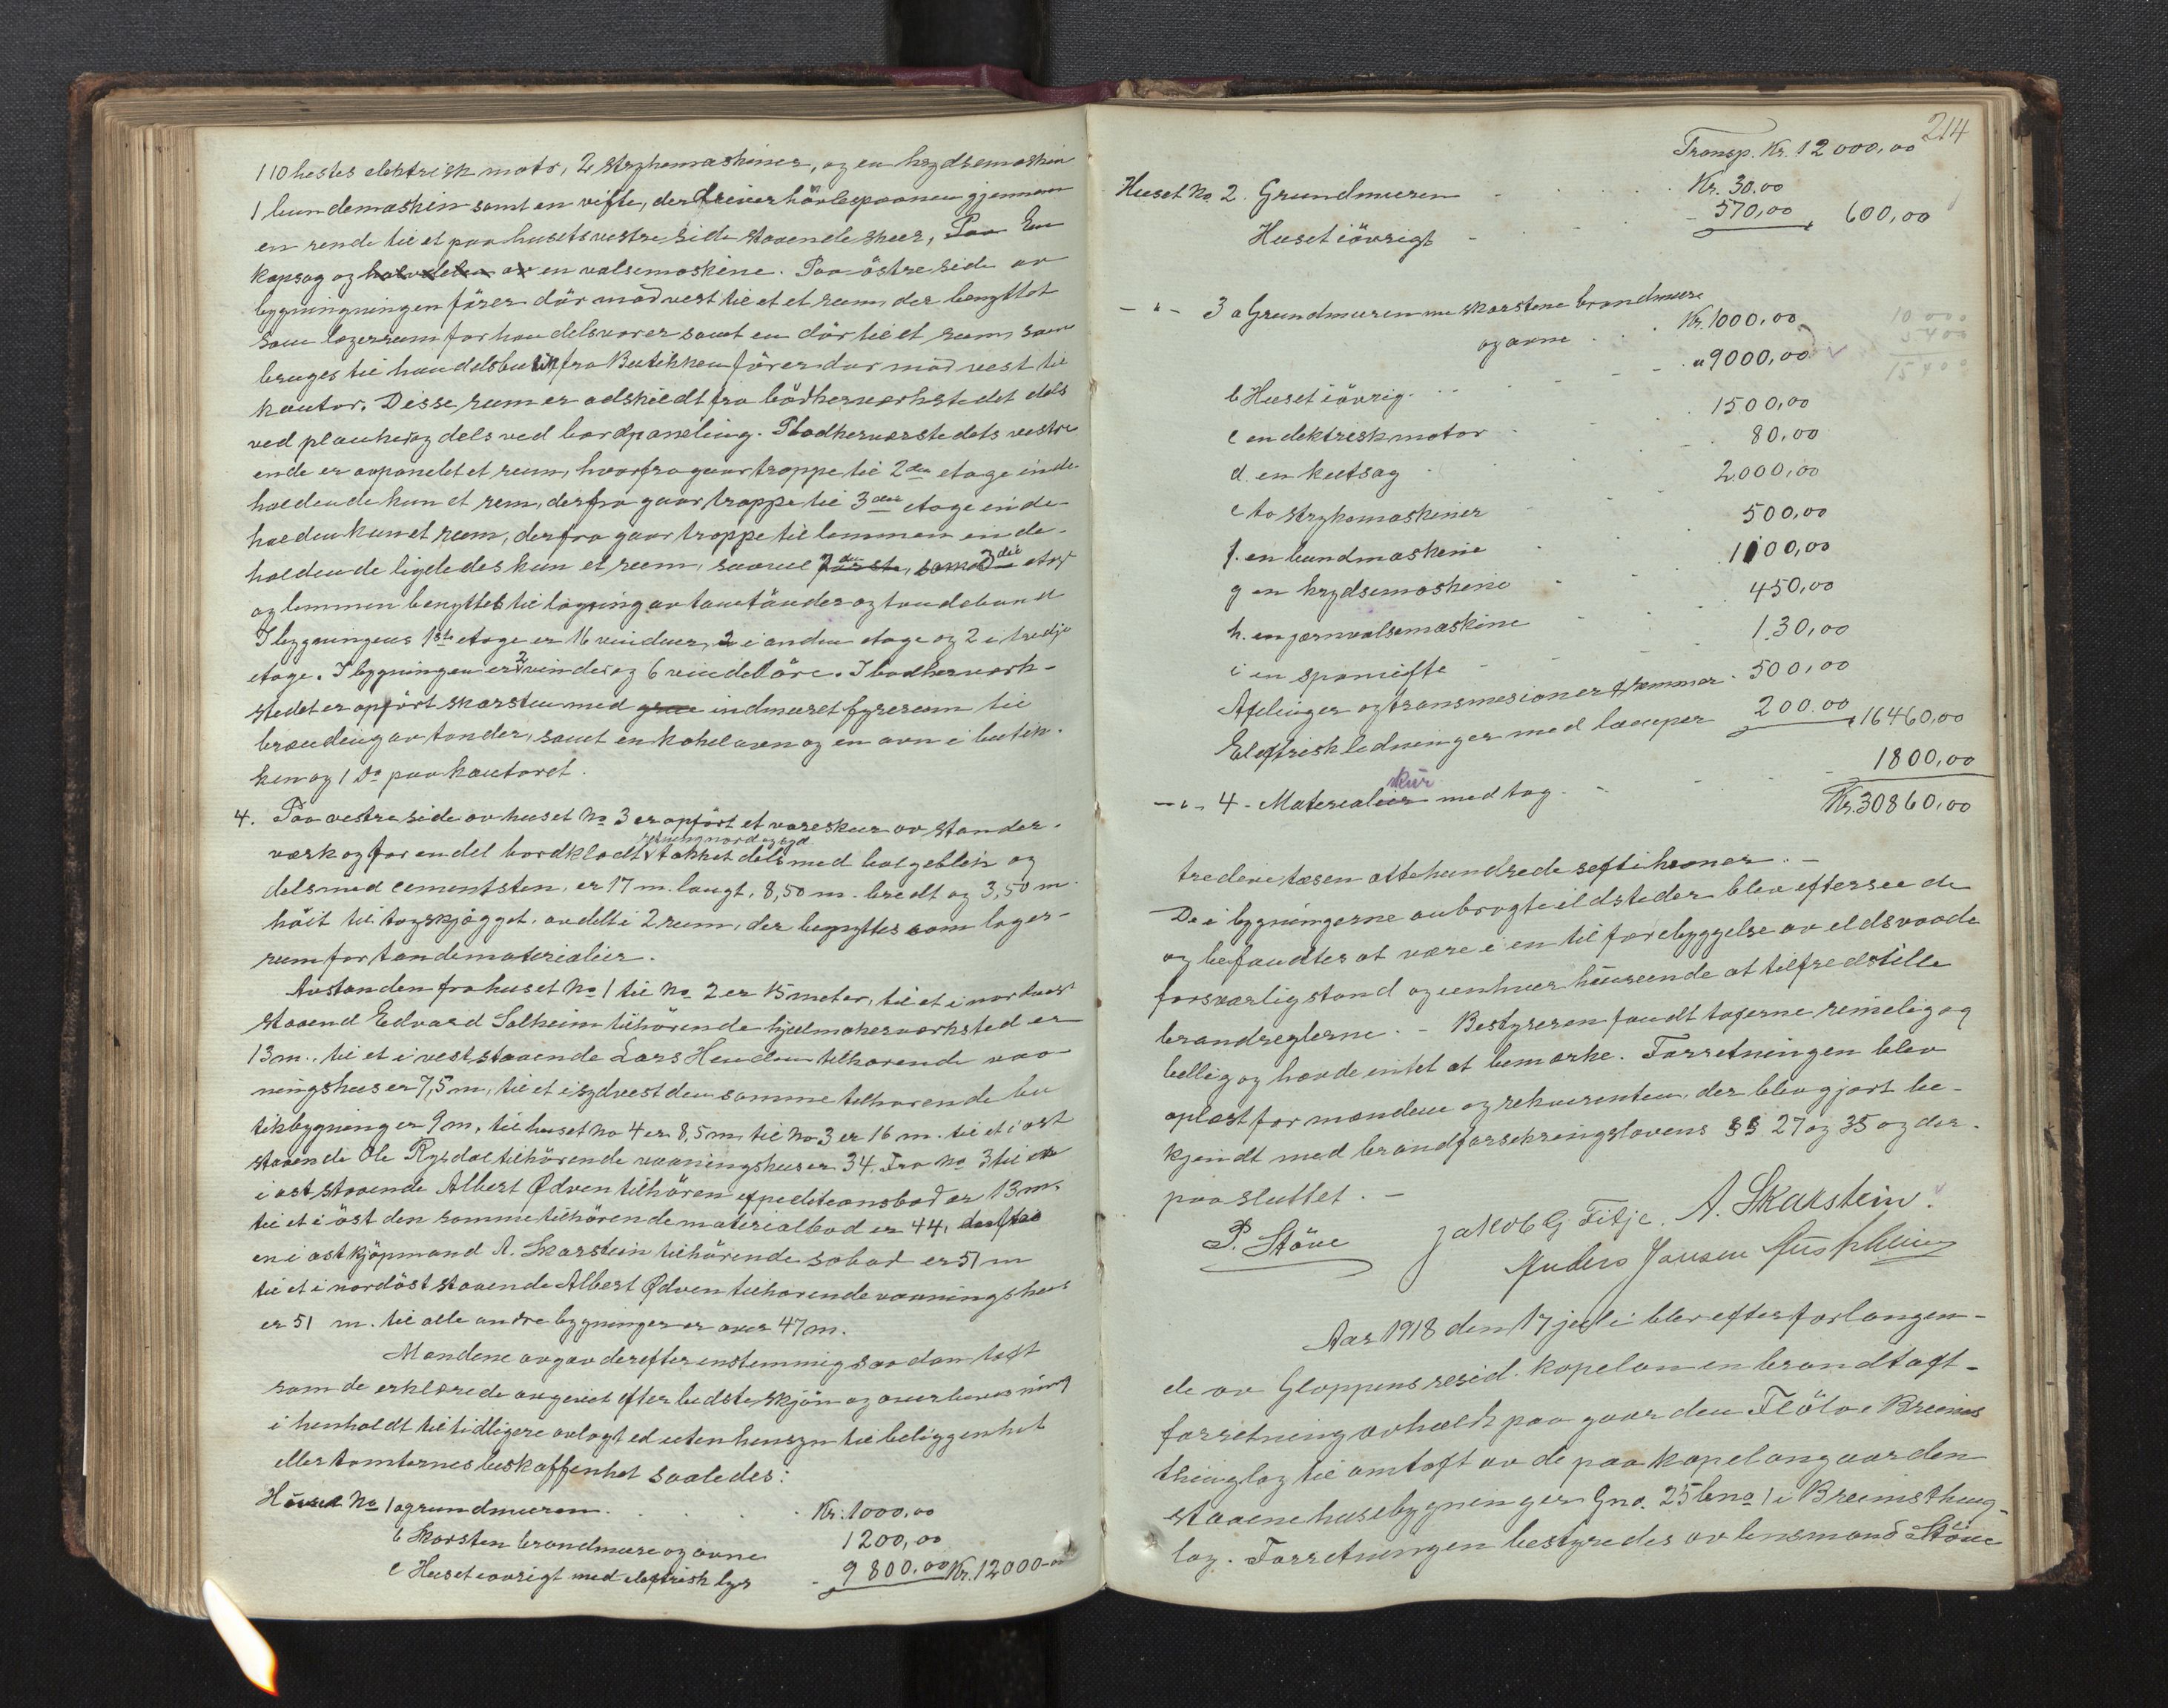 110 hestes elektrisk motor, 2 strykemaskiner, og en krydsemaskin
1 bundemaskin samt en vifte, der driver hövlesponen gjennem
en rende til et paa husets vestre side staaende skur, Paa En
kapsag og halvdelen av en valsemaskine. Paa östre side av
bygningningen förer dör mod vest til et et rum der benyttet
som lagerrum for handelsvarer samt en dör til et rum som
bruges til handelsbutik fra Butikken förer dör mod vest til
kontor. Disse rum er adskiedt fra bödkerverkstedet dels
ved planker og dels ved bordpaneling. I bødkerverstedets vestre
ende er avpanelet et rum, hvorfra gaar trappe til 2den etage inde-
holdende kun et rum, derfra gaar trappe til 3die etage inde-
holden kun et rum, derfra gaar trappe til lemmen inde-
holdende ligeledes kun et rum, saavel første, 2den som 3die etage
og lemmen benyttes til lagring av tomtönder og tøndebaand
I bygningens 1ste etage er 16 vinduer, 2 i anden etage og 2 i tredje
etage. I bygningen er 2 vinder og 6 vindelöre. I bødkerverk-
stedet er opfört skorsten med grue indmuret fyrerum til
brænding av tønder, samt en kokelovn og en ovn i butik-
ken og 1 do paa kontoret.
4. Paa vestre side av huset No 3 er opført et vareskur av stander-
retning nord og syd
verk og for en del bordklædt takket dels med bølgeblik og
dels med cementsten, er 17 m. langt, 8,50 m. bredt og 3,50 m.
höit til tagskjægget, avdelt i 2 rum, der benyttes som lager-
rum for tøndematerialier.
Avstanden fra huset No 1 til No 2 er 15 meter, til et i nordvest
staaend Edvard Solheim tilhörende hjulmakerverksted er
13 m., til et i vest staaende Lars Henden tilhørende vaa-
ningshus er 7,5 m, til et i sydvest den samme tilhørende bu
tikbygning er 9 m, til huset no 4 er 8,5 m til No 3 er 16 m. til et i øst
staaende Ole Rygdal tilhörende vaaningshus er 34. Fra No 3 til et
i øst staaende Albert Ødven tilhören expeditionsbod er 13 m.
til et i öst den samme tilhörende materialbod er 44,
en i øst kjöpmand A. Skarstein tilhörende sobod er 51 m
til et i nordöst staaende Albert Ødven tilhørende vaaningshus
er 51 m. til alle andre bygninger er over 47 m.
Mændene avgav derefter enstemmig saadan taxt
som de erklærede avgivet efter bedste skjön og overbevisning
i henholdt til tidligere avlagt ed uten hensyn til beliggenhet
eller tomternes beskaffenhet saaledes:
Huset No 1 a grundmuren . . . Kr. 1000,00
b Skorsten brandmure og ovne 1200,00
c Huset iøvrigt med elektrisk lys - 9800,00 Kr. 12000-00
214
Transp. Kr. 12000,00
Huset No. 2. Grundmuren Kr. 30.00
Huset iövrigt - 570,00 , 600,00
- " - 3 a Grundmuren m skorstene brandmure
og ovne . . Kr. 1000,00
b Huset iövrig. . . " 9000,00
10 000
5400
15400
c en elektrisk motor 1500,00
d. en kutsag 80,00
e to strykemaskiner 2000,00
f. en bundmaskine 500,00
g en krydsemaskine 1100,00
h. en jernvalsemaskine 450,00
i en sponvifte 130,00
Axlinger og transmesioner & remmer 500,00
Elektrisk ledninger med lamper 200.00 , 16460,00
skur
- " - 4 - Materialier med tag 1800,00
Kr. 30860,00
tredevetusen ottehundrede seksti kroner. -
De i bygningerne anbragte ildsteder blev efterseede
og befandtes at være i en til forebyggelse av ildsvaade
forsvarlig stand og i enhver henseende at tilfredstille
brandreglerne. - Bestyreren fandt taxterne rimelig og
billig og havde intet at bemærke. Forretningen blev
oplæst for mændene og rekvirenten, der blev gjort be-
kjendt med brandforsikringslovens §§ 27 og 35 og der-
paa sluttet. -
P. Støve Jakob G Fitje. A. Skarstein.
Anders Jansen Austrheim
Aar 1918 den 17 juli blev efter forlangen-
de av Gloppens resid. kapelan en brandtaxt-
forretning avholdt paa gaarden Flöta i Breims
thinglag til omtaxt av de paa kapelangaarden
staaene husebygninger Gno. 25 bno 1 i Breims thing-
lag. Forretningen bestyredes av lensmand Støve